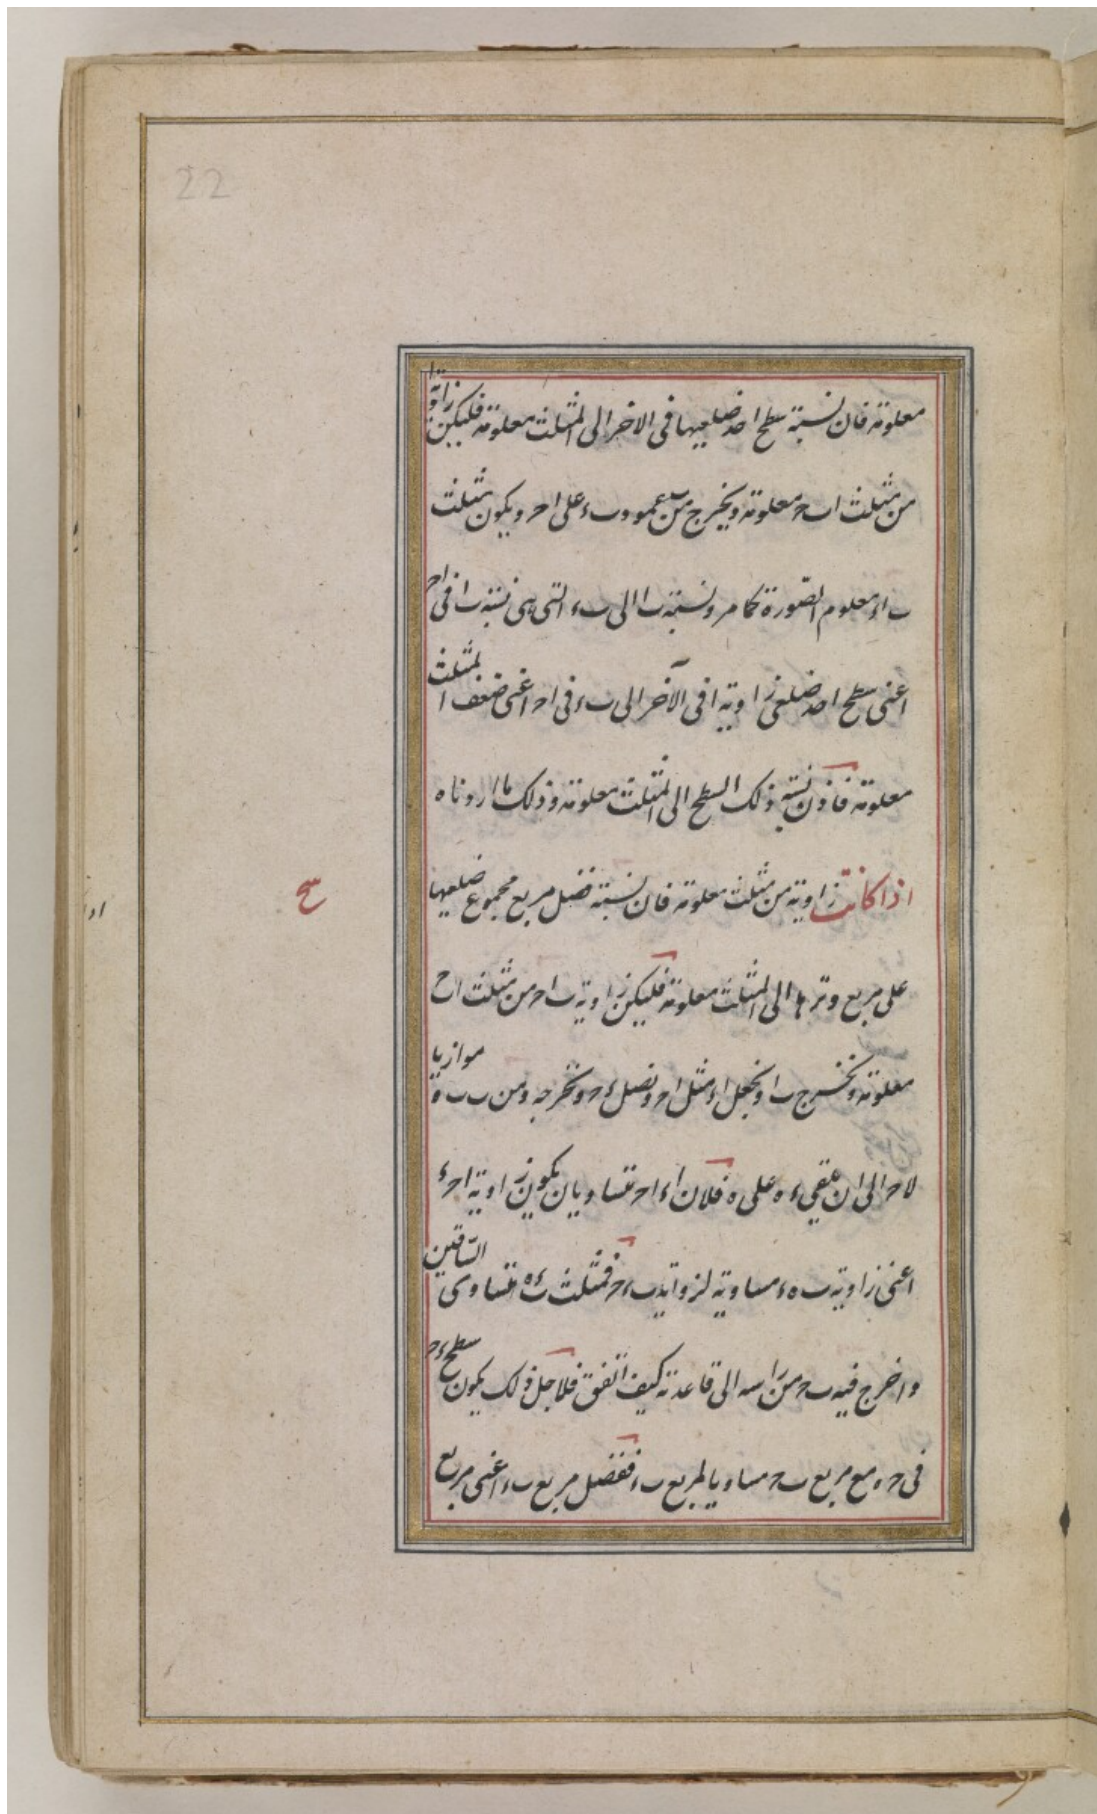 22
معلومة فان نسبة سطح احد ضلعيها فى الاخر الى المثلث معلومة فليكن زاوية ا
من مثلث اب‍ح معلومة ويخرج من ب عمود ب‍ء على اح ويكون مثلث
ب‍اء معلوم الصورة كما مر ونسبة ب‍ا الى ب‍ء التى هى نسبة ب‍ا فى اح
اعنى سطح احد ضلعى زاوية ا فى الآخر الى ب‍ء فى اح اعنى ضعف المثلث
معلومة فاذن نسبة ذلك السطح الى المثلث معلومة وذلك ما اردناه
اذا كانت زاوية من مثلث معلومة فان نسبة فضل مربع مجموع ضلعيها
سح
على مربع وترها الى المثلث معلومة فليكن زاوية ب‍اح من مثلث اب‍ح
معلومة ونخرج ب‍ا ونجعل اء مثل اح ونصل ءح ونخرجه ومن ب ب‍ه موازيا
لاح الى ان يلقى ءه على ه فلان اء اح متساويان يكون زاوية احء
اعنى زاوية ب‍هء مساوية لزاوية ب‍ءح فمثلث ب‍ءه متساوى الساقين
واخرج فيه ب‍ح من راسه الى قاعدته كيف اتفق فلاجل ذلك يكون سطح ءح
فى حه مع مربع ب‍ح مساويا لمربع ب‍ء ففضل مربع ب‍ء اعنى مربع